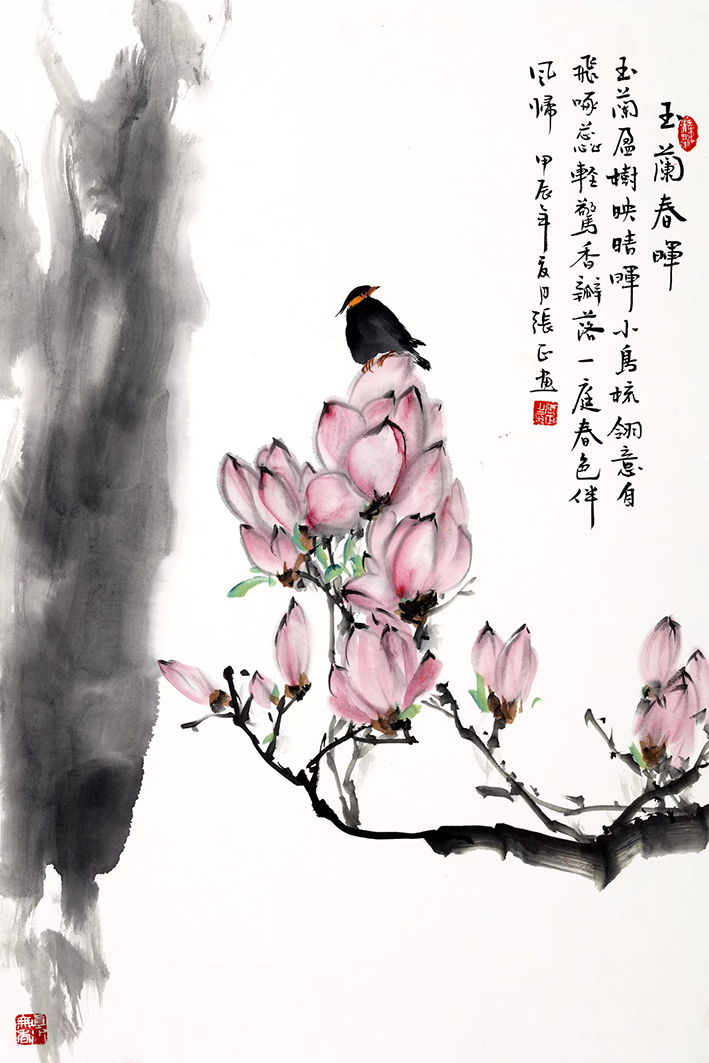 玉蘭春暉
玉蘭盈樹映晴暉小鳥梳翎意自
飛啄蕊輕驚香瓣落一庭春色伴
風歸 甲辰年夏月張正畫